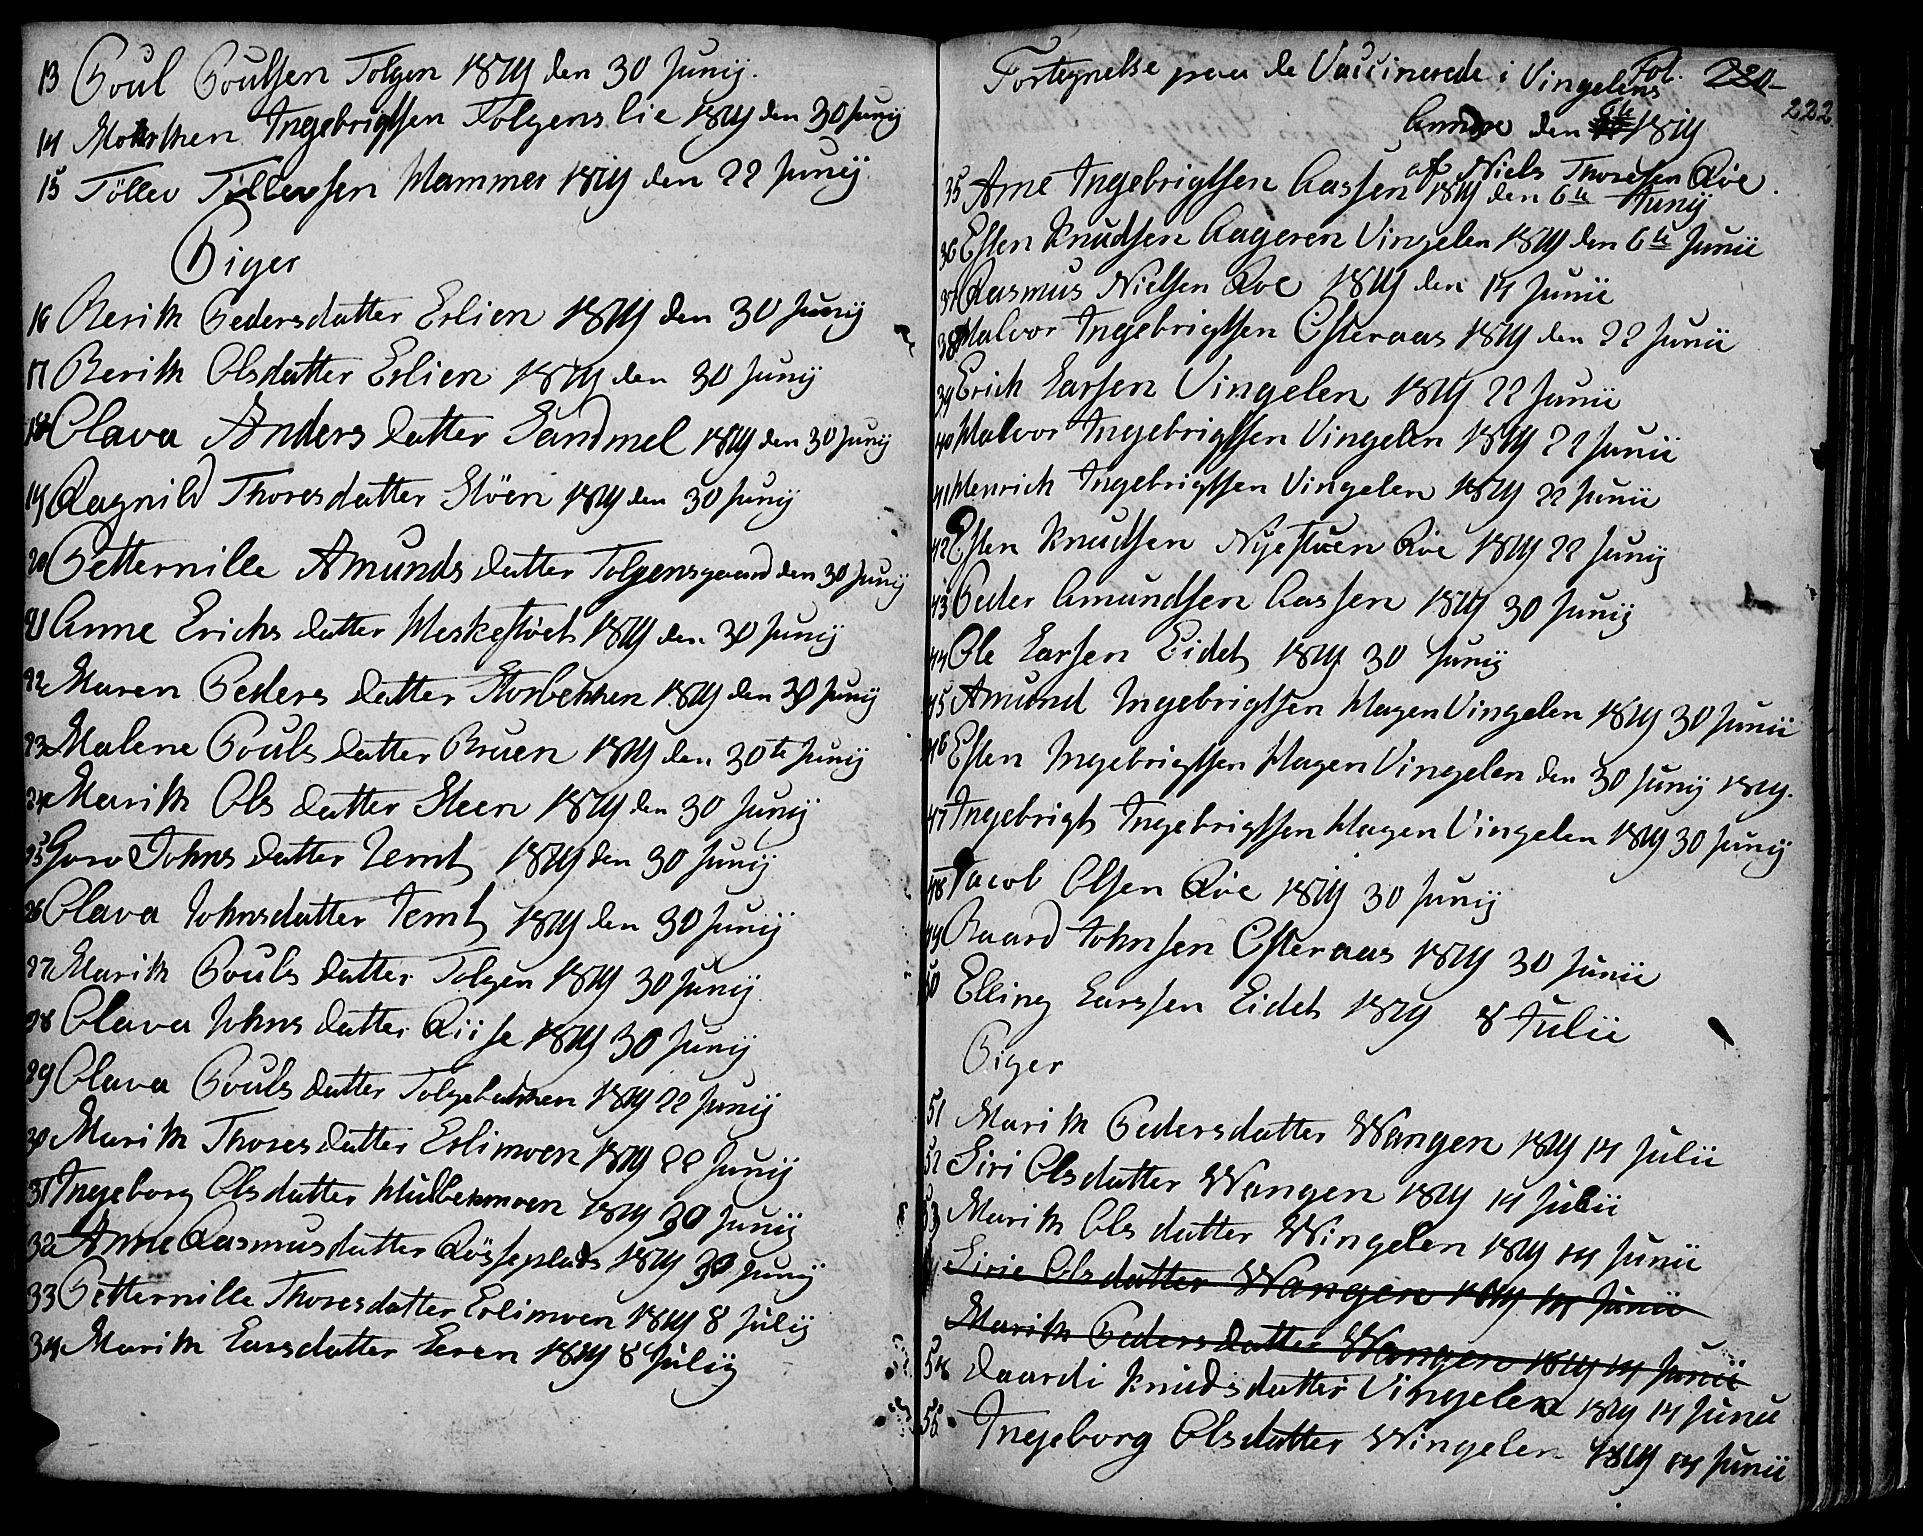 13 Poul Poulsen Tolgen 1819 den 30 Junij.
14 Morthen Ingebrigtsen Tolgens lie 1819 den 30 Junij
15 Töllev Töllevsen Hammer 1819 den 22 Junij
Piger
16 Berith Pedersdatter Erlien 1819 den 30 Junij
17 Berith Olsdatter Erlien 1819 den 30 Junij
18 Olava Anders datter Sandmel 1819 den 30 Junij
19 Ragnild Thoresdatter Stöen 1819 den 30 Junij
20 Petternille Amunds datter Tolgensgaard den 30 Junij
21 Anne Erichs datter Heskestöel 1819 den 30 Junij
22 Maren Peders datter Storbekken 1819 den 30 Junij
23 Malene Pouls datter Bruen 1819 den 30te Junij
24 Marith Ols datter Steen 1819 den 30 Junij
25 Goro Johns datter Jemt 1819 den 30 Junij
26 Olava Johnsdatter Jemt 1819 den 30 Junij
27 Marith Pouls datter Tolgen 1819 30 Junij
28 Olava Johns datter Riise 1819 30 Junij
29 Olava Pouls datter Tolgebakken 1819 22 Junij
30 Marith Thores datter Erlimoen 1819 22 Junij
31 Ingeborg Olsdatter Hulbekmoen 1819 30 Junij
32 Anne Rasmusdatter Röyseplads 1819 30 Junij
33 Petternille Thoresdatter Erlimoen 1819 8 Julij
34 Marith Larsdatter Leren 1819 8 Julij
Fortegnelse paa de Vaccinerede i Vingelens Fol. 220
222
Annex den 6te 1819
af Niels Thoresen Röe.
35 Arne Ingebrigtsen Aassen 1819 den 6te Junij
36 Esten Knudsen Aageren Vingelen 1819 den 6te Junii
37 Rasmus Nielsen Röe 1819 den 14 Junii
38 Halvor Ingebrigtsen Osteraas 1819 den 22 Junii
39 Erich Larsen Vingelen 1819 22 Junii
40 Halvor Ingebrigtsen Vingelen 1819 22 Junii
41 Henrich Ingebrigtsen Vingelen 1819 22 Junii
42 Esten Knudsen Nyestuen Röe 1819 22 Junij
43 Peder Amundsen Aassen 1819 30 Junij
44 Ole Larsen Eidet 1819 30 Junij
45 Amund Ingebrigtsen Hagen Vingelen 1819 30 Junii
46 Esten Ingebrigtsen Hagen Vingelen den 30 Junij 1819.
47 Ingebrigt Ingebrigtsen Hagen Vingelen 1819 30 Junij
48 Jacob Olsen Röe 1819 30 Junij
49 Baard Johnsen Osteraas 1819 30 Junii
50 Elling Larssen Eidet 1819 8 Julii
Piger
51 Marith Pedersdatter Wangen 1819 14 Julii
52 Siri Olsdatter Wangen 1819 14 Julii
53 Marith Ols datter Wingelen 1819 14 Junii
Sirie Olsdatter Wangen 1819 14 Junii
Marith Peders datter Wangen 1819 14 Junii
54 Daardi Knudsdatter Vingelen 1819 14 Junii
55 Ingeborg Olsdatter Wingelen 1819 14 Junii